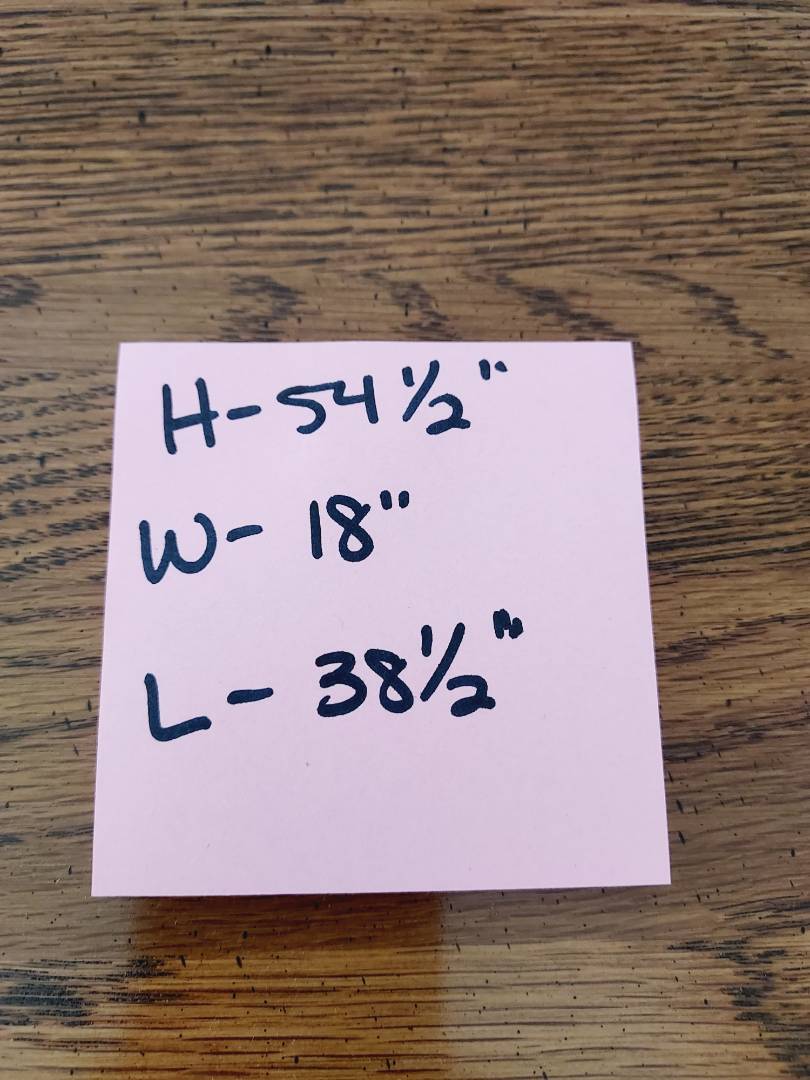 H- 54 1/2"
W- 18"
L- 38 1/2"